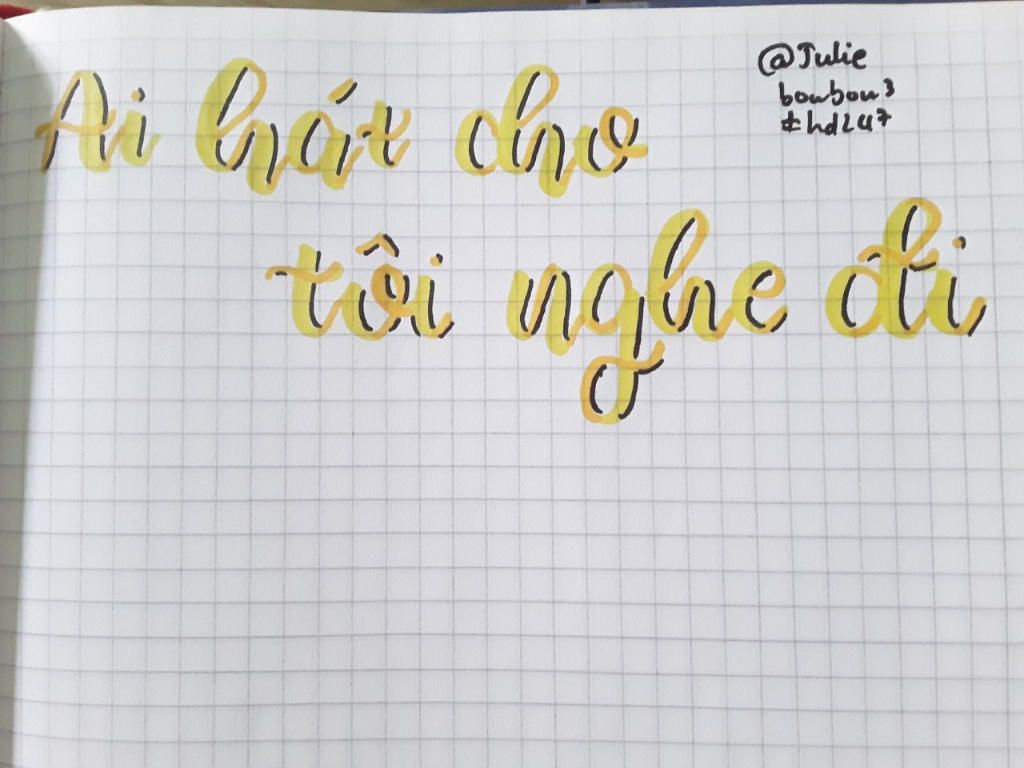 Ai hát cho
tôi nghe đi
@Julie
bonbon3
#hd247